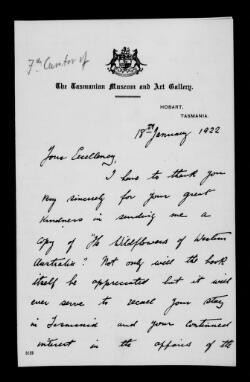 7th Cantor of
The Tasmanian Museum and Art Gallery.
HOBART,
TASMANIA.
18th January 1922
Your Excellency,
I have to thank you
very sincerely for your great
kindness in sending me a
copy of "The Wildflowers of Western
Australia". Not only will the book
itself be appreciated but it will
ever serve to recall your stay
in Tasmania and your continued
interest in the affairs of the